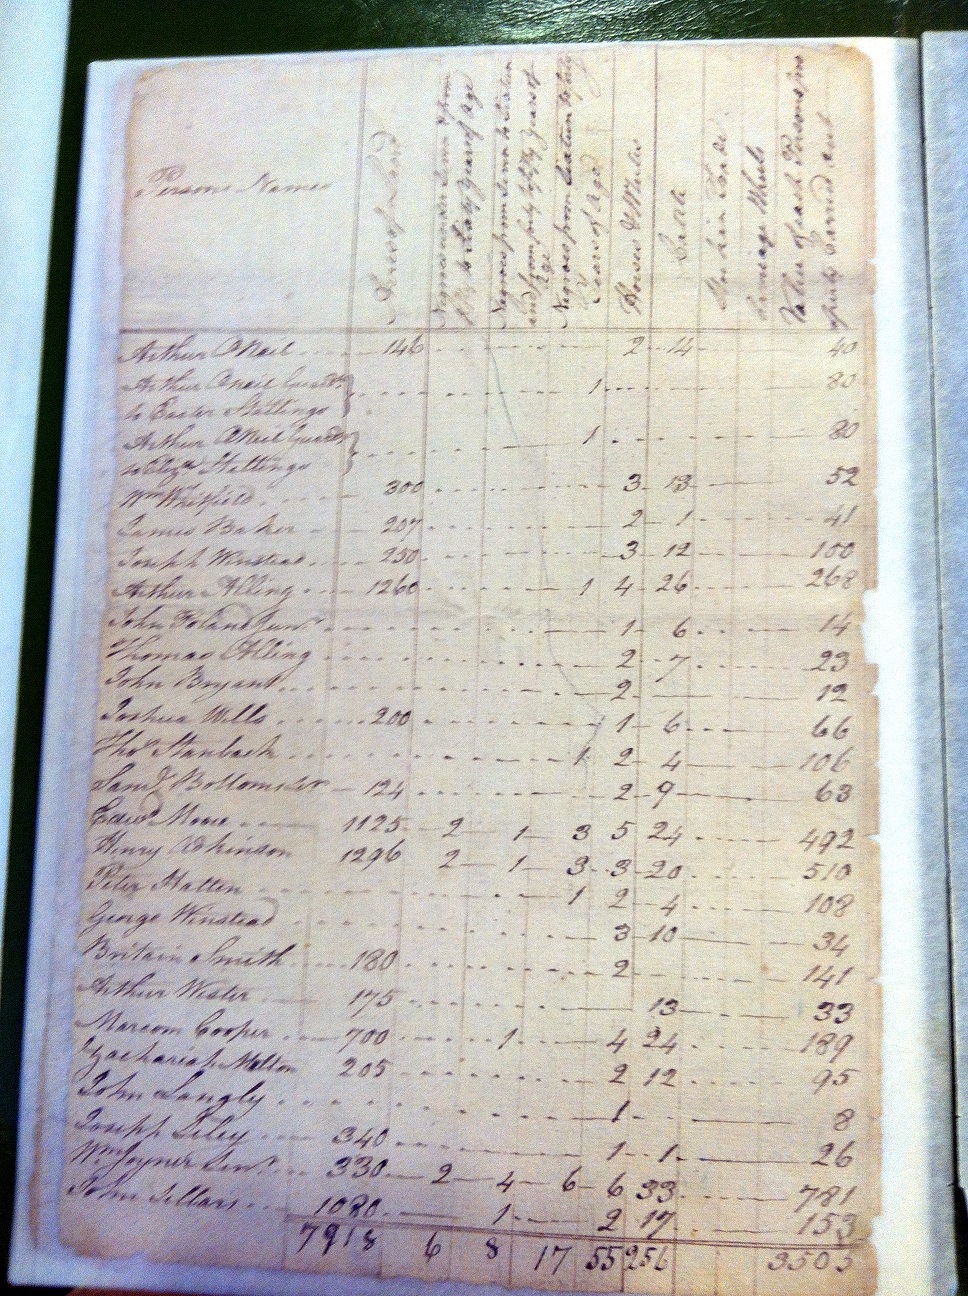 Persons Names
Acres of Land
Negroes under Seven & from
fifty to Sixty Years of Age
Negroes from Seven to Sixteen
and from forty to fifty Years of
Age
Negroes from Sixteen to forty
Years of Age
Horses & Mules
Cattle
Stock in Trade
Carriage Wheels
Value of each Persons pro
perty Carried out
Arthur ONeil 146 2 14 40
Arthur ONeil Guardn 1 80
to Easter Stallings
Arthur ONeil Guardn 1 80
to Eliza Stallings
Wm Whitfield 300 3 13 52
James Baker 207 2 1 41
Joseph Winstead 250 3 12 100
Arthur Alling 1260 1 4 26 268
John Junr 1 6 14
Thomas Alling 2 7 23
John Bryant 2 12
Joshua Wills 200 1 6 66
Thos Stanback 1 2 4 106
Saml Bottoms Sr 124 2 9 63
Edwd Moore 1125 2 1 3 5 24 492
Henry Adkinson 1296 2 1 3 3 20 510
Peter Hatten 1 2 4 108
George Winstead 3 10 34
Britain Smith 180 2 141
Arthur Wester 175 13 33
Marcom Cooper 700 1 4 24 189
Zachariah Melton 205 2 12 95
John Langly 1 8
Joseph Siley 340 1 1 26
Wm Joyner Senr 330 2 4 6 6 33 781
John Sellars 1080 1 2 17 153
7918 6 8 17 55 256 3505